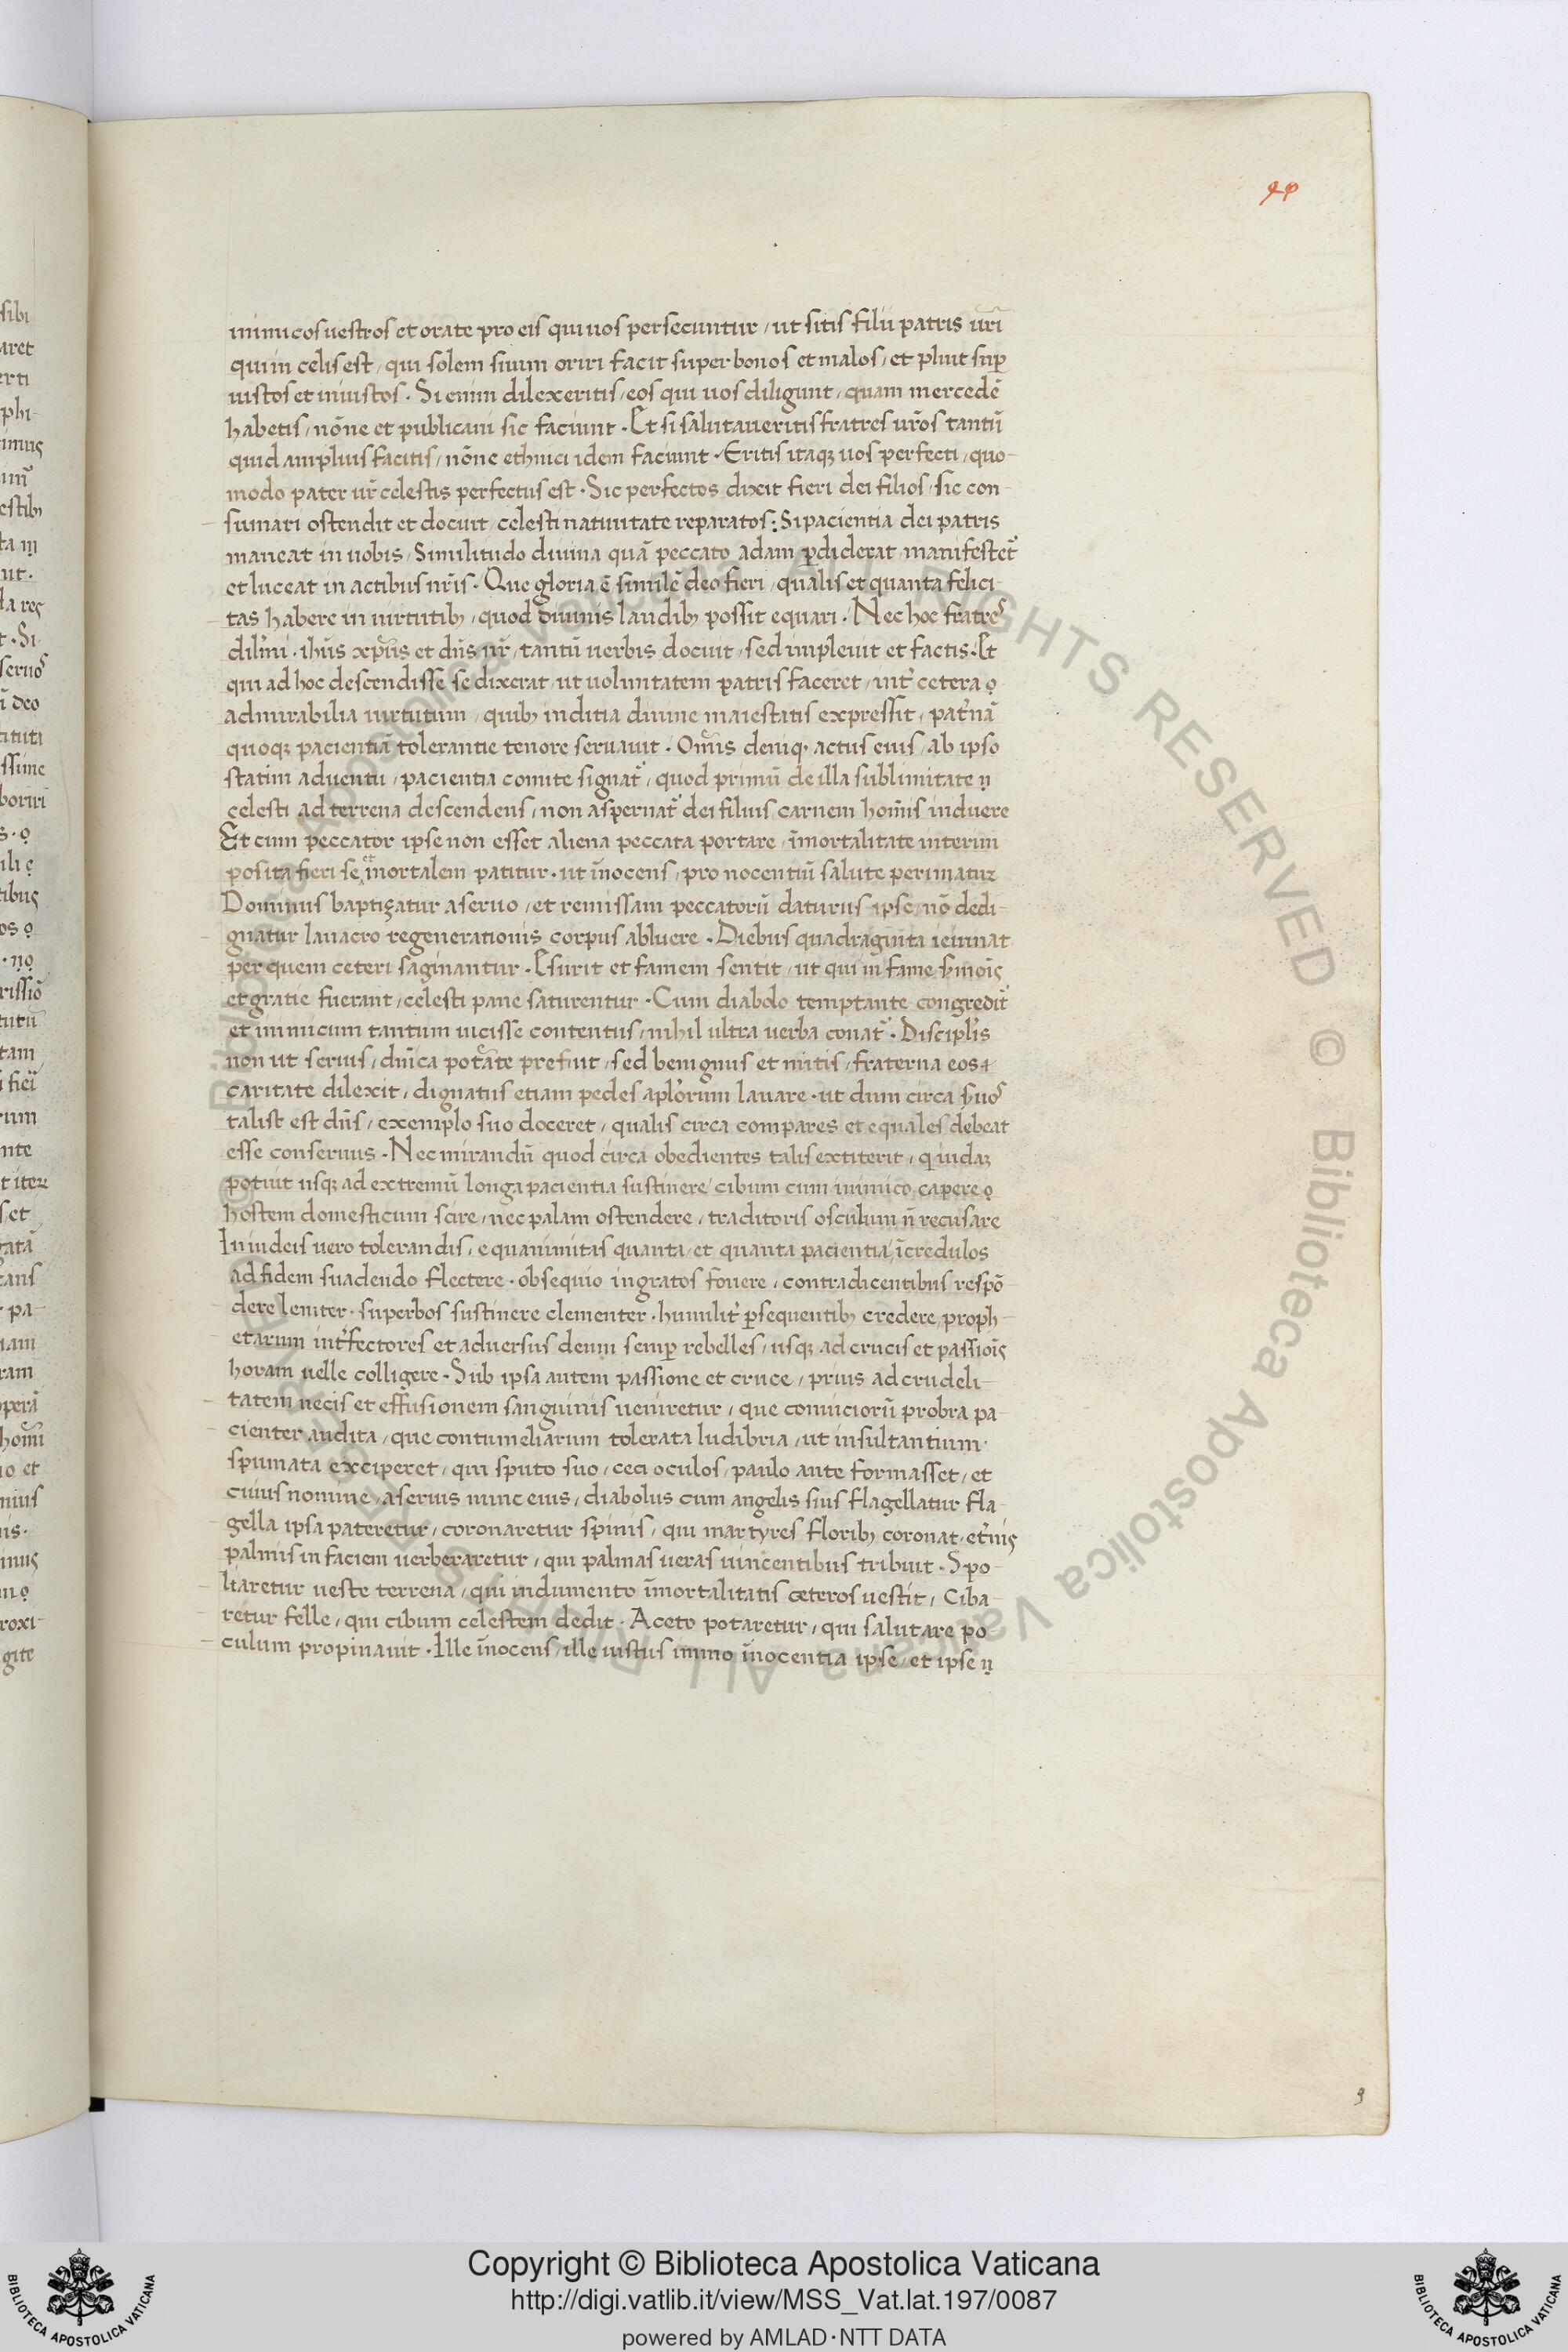 40
inimicos uestros et orate pro eis qui uos persecuntur, ut sitis filii patris ur̃i
qui in celis est, qui solem suum oriri facit super bonos et malos, et pluit sup̱
iustos et iniustos. Si enim dilexeritis, eos qui uos diligunt, quam mercedẽ
habetis, nõne et publicani sic faciunt. Et si salutaueritis fratres ur̃os tantũ
quid amplius facitis, nõne ethnici idem faciunt. Eritis itaqꝫ uos perfecti, quo-
modo pater ur̃ celestis perfectus est. Sic perfectos dixit fieri dei filios, sic con-
sumari ostendit et docuit, celesti natiuitate reparatos: Si pacientia dei patris
maneat in uobis, Similitudo diuina quã peccato adam ꝑdiderat, manifestet᷑
et luceat in actibus nr̃is. Que gloria ẽ similẽ deo fieri, qualis et quanta felici-
tas habere in uirtutibꝫ, quod diuinis laudibꝫ possit equari. Nec hoc fratres
dil̃mi. ihũs xp̃us et dñs nr̃, tantũ uerbis docuit, sed impleuit et factis. Et
qui ad hoc descendisse se dixerat, ut uoluntatem patris faceret, int̉ cetera
admirabilia uirtutum, quibꝫ inditia diuine maiestatis expressit, pat̉nã
quoqꝫ pacientiã tolerantie tenore seruauit. Om̃is deniqꝫ actus eius, ab ipso
statim aduentu, pacientia comite signat᷑, quod primũ de illa sublimitate
celesti ad terrena descendens, non aspernat᷑ dei filius carnem hom̃is induere
Et cum peccator ipse non esset aliena peccata portare, ĩmortalitate interim
posita fieri se et mortalem patitur. ut ĩnocens, pro nocentiũ salute perimatur
Dominus baptiçatur a seruo, et remissam peccatorũ daturus ipse, nõ dedi-
gnatur lauacro regenerationis corpus abluere. Diebus quadraginta ieiunat
per quem ceteri saginantur. Esurit et famem sentit, ut qui in fame s̉mois
et gratie fuerant, celesti pane saturentur. Cum diabolo temptante congredit᷑
et inimicum tantum uicisse contentus, nihil ultra uerba conat᷑. Discipl̉is
non ut seruis, dñica potãte prefuit, sed benignus et mitis, fraterna eos
caritate dilexit, dignatus etiam pedes apl̉orum lauare. ut dum circa s̉uos
talist est dñs, exemplo suo doceret, qualis circa compares et equales debeat
esse conseruus. Nec mirandũ quod circa obedientes talis extiterit, qui iudaꝫ
potuit usqꝫ ad extremũ longa pacientia sustinere, cibum cum inimico capere
hostem domesticum scire, nec palam ostendere, traditoris osculum ñ recusare
In iudeis uero tolerandis, equanimitas quanta, et quanta pacientia, ĩcredulos
ad fidem suadendo flectere. obsequio ingratos fouere, contradicentibus respõ-
dere leniter. superbos sustinere clementer. humilit̉ ꝑsequentibꝫ credere, proph-
etarum int̉fectores et aduersus deum semꝑ rebelles, usqꝫ ad crucis et passiois
horam uelle colligere. Sub ipsa autem passione et cruce, prius ad crudeli-
tatem necis et effusionem sanguinis ueniretur, que conuiciorũ probra pa-
cienter audita, que contumeliarum tolerata ludibria, ut insultantium
spumata exciperet, qui sputo suo, ceci oculos, paulo ante formasset, et
cuius nomine, a seruis nunc eius, diabolus cum angelis suis flagellatur fla-
gella ipsa pateretur, coronaretur spinis, qui martyres floribꝫ coronat, et̉nis
palmis in faciem uerberaretur, qui palmas ueras uincentibus tribuit. Spo-
liaretur ueste terrena, qui indumento ĩmortalitatis ceteros uestit, Ciba-
retur felle, qui cibum celestem dedit. Aceto potaretur, qui salutare po-
culum propinauit. Ille ĩnocens, ille iustus immo ĩnocentia ipse, et ipse
9
Copyright © Biblioteca Apostolica Vaticana
http://digi.vatlib.it/view/MSS_Vat.lat.197/0087
powered by AMLAD·NTT DATA
BIBLIOTECA APOSTOLICA VATICANA
BIBLIOTECA APOSTOLICA VATICANA